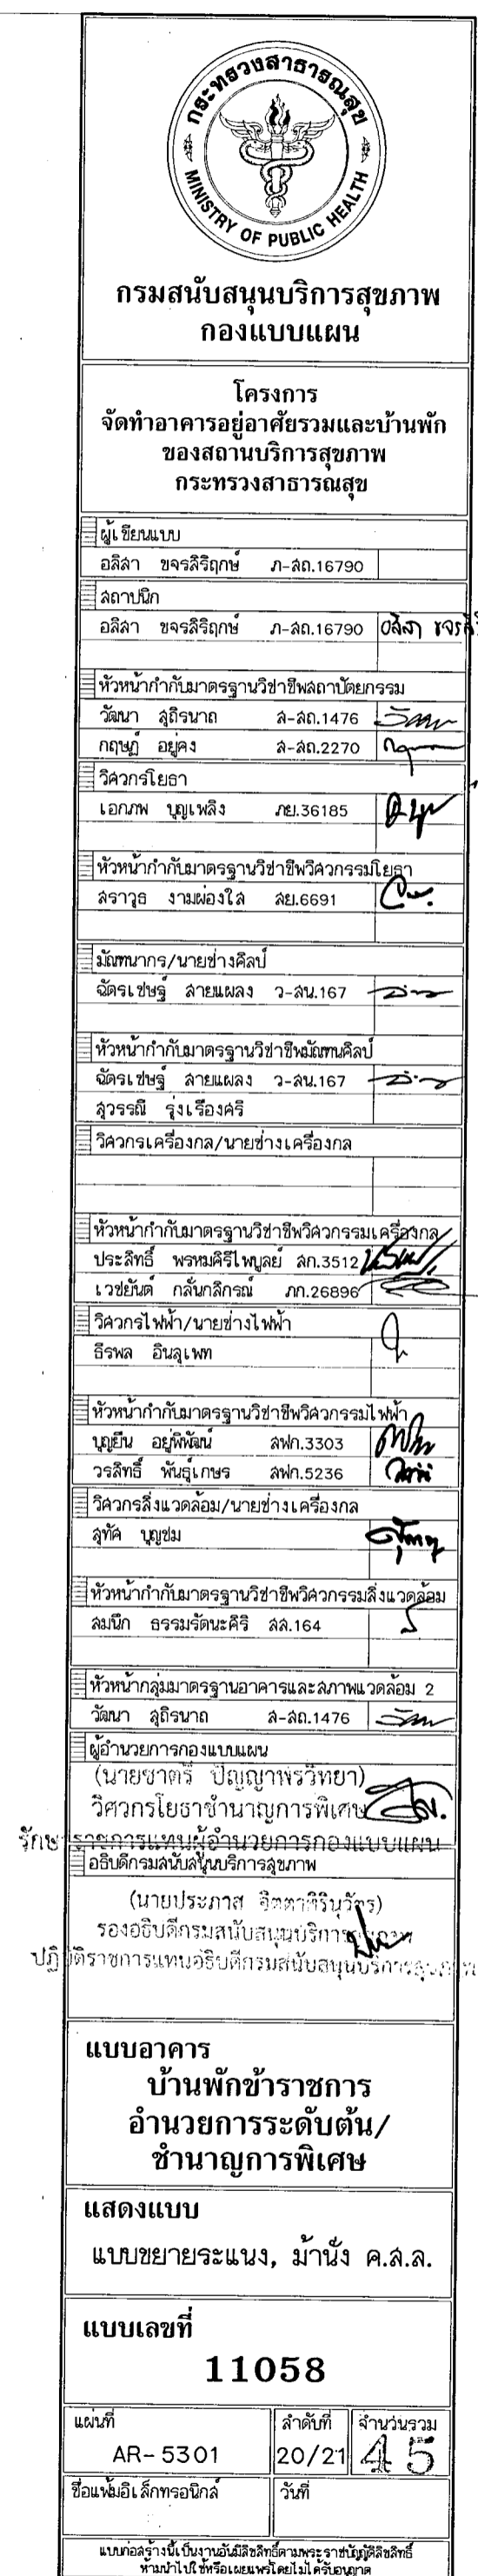 กระทรวงสาธารณสุข
MINISTRY OF PUBLIC HEALTH
กรมสนับสนุนบริการสุขภาพ
กองแบบแผน
โครงการ
จัดทำอาคารอยู่อาศัยรวมและบ้านพัก
ของสถานบริการสุขภาพ
กระทรวงสาธารณสุข
ผู้เขียนแบบ
อลิสา ขจรสิริฤกษ์ ภ-สถ.16790
สถาปนิก
อลิสา ขจรสิริฤกษ์ ภ-สถ.16790 อลิสา ขจรสิริ
หัวหน้ากำกับมาตรฐานวิชาชีพสถาปัตยกรรม
วัฒนา สุถิรนาถ ส-สถ.1476
กฤษฎ์ อยู่คง ส-สถ.2270
วิศวกรโยธา
เอกภพ บุญเพลิง ภย.36185
หัวหน้ากำกับมาตรฐานวิชาชีพวิศวกรรมโยธา
สราวุธ งามผ่องใส สย.6691
มัณฑนากร/นายช่างศิลป์
ฉัตรเชษฐ์ สายแผลง ว-สน.167
หัวหน้ากำกับมาตรฐานวิชาชีพมัณฑนศิลป์
ฉัตรเชษฐ์ สายแผลง ว-สน.167
สุวรรณี รุ่งเรืองศรี
วิศวกรเครื่องกล/นายช่างเครื่องกล
หัวหน้ากำกับมาตรฐานวิชาชีพวิศวกรรมเครื่องกล
ประสิทธิ์ พรหมคิรีไพบูลย์ สก.3512
เวชยันต์ กลั่นกลิกรณ์ ภก.26896
วิศวกรไฟฟ้า/นายช่างไฟฟ้า
ธีรพล อินลุเพท
หัวหน้ากำกับมาตรฐานวิชาชีพวิศวกรรมไฟฟ้า
บุญยืน อยู่พิพัฒน์ สฟก.3303
วรสิทธิ์ พันธุ์เกษร สฟก.5236
วิศวกรสิ่งแวดล้อม/นายช่างเครื่องกล
สุทัศ บุญชม
หัวหน้ากำกับมาตรฐานวิชาชีพวิศวกรรมสิ่งแวดล้อม
สมนึก ธรรมรัตนะคิริ สส.164
หัวหน้ากลุ่มมาตรฐานอาคารและสภาพแวดล้อม 2
วัฒนา สุถิรนาถ ส-สถ.1476
ผู้อำนวยการกองแบบแผน
(นายชาตรี ปัญญาพรวิทยา)
วิศวกรโยธาชำนาญการพิเศษ
รักษาราชการแทนผู้อำนวยการกองแบบแผน
อธิบดีกรมสนับสนุนบริการสุขภาพ
(นายประภาส
รองอธิบดีกรมสนับสนุนบริการสุขภาพ
ปฏิบัติราชการแทนอธิบดีกรมสนับสนุนบริการสุขภาพ
แบบอาคาร
บ้านพักข้าราชการ
อำนวยการระดับต้น/
ชำนาญการพิเศษ
แสดงแบบ
แบบขยายระแนง, ม้านั่ง ค.ส.ล.
แบบเลขที่
11058
แผ่นที่ ลำดับที่ จำนวนรวม
AR-5301 20/21 45
ชื่อแฟ้มอิเล็กทรอนิกส์ วันที่
แบบก่อสร้างนี้เป็นงานอันมีลิขสิทธิ์ตามพระราชบัญญัติลิขสิทธิ์
ห้ามนำไปใช้หรือเผยแพร่โดยไม่ได้รับอนุญาต